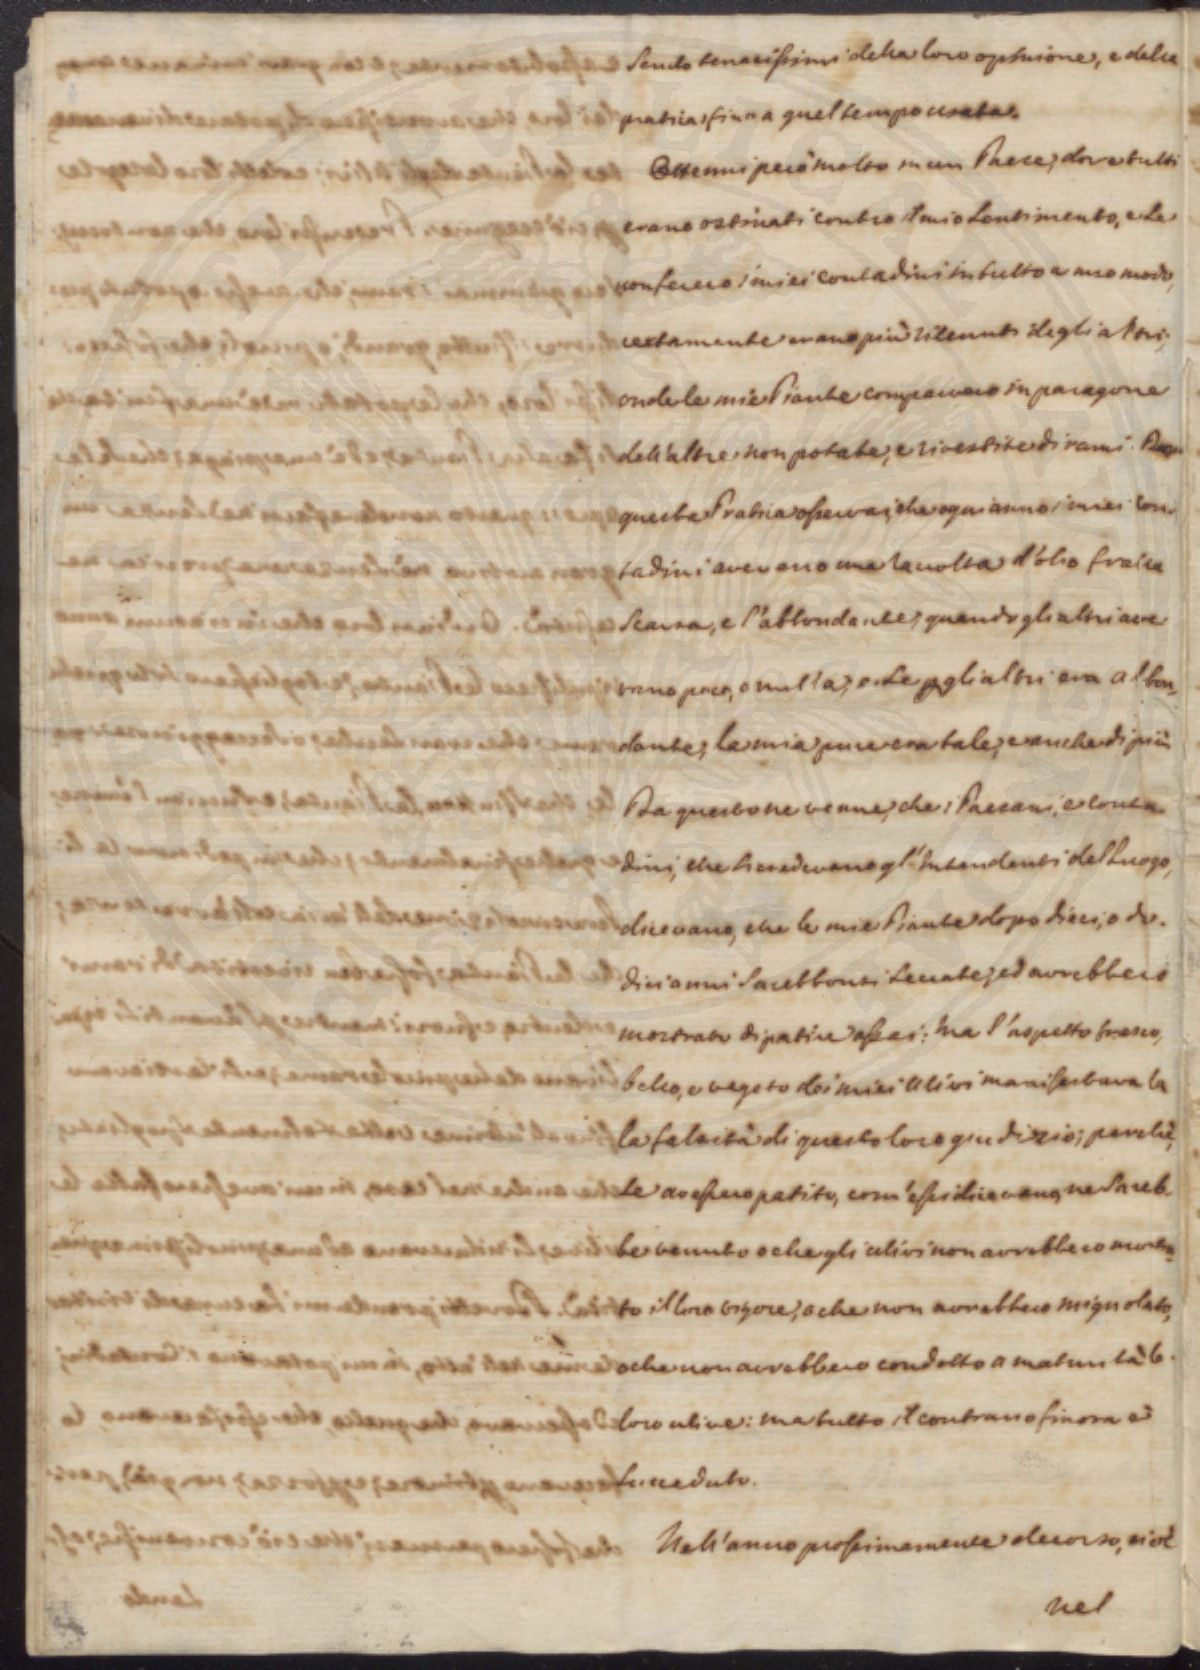 sendo tenacissimi della loro opinione, e della
pratica sino a quel tempo usata.
Ottenni però molto in un Paese, dove tutti
erano ostinati contro il mio sentimento, e se
non fecero i miei contadini in tutto a mio modo,
certamente erano più ritenuti degli altri;
onde le mie Piante comparvero in paragone
dell'altre non potate, e rivestite di rami.
questa Pratica osservai, che ogni anno i miei con-
tadini avevano una racolta d'olio fralla
scarsa, e l'abbondante; quando gli altri ave
vano poco, o nulla; e se p gli altri era abbon-
dante, la mia pure era tale, e anche di più
Da questo ne venne, che i Paesani, e conta-
dini, che si credevano gl'Intendenti del Luogo,
dicevano, che le mie Piante dopo dieci, o do-
dici anni sarebbonsi seccate, ed avrebbero
mostrato di patire assai: ma l'aspetto fresco,
bello, e vegeto dei miei ulivi manifestava la
la falsità di questo loro giudizio; perchè,
se avessero patito, com'essi dicevano, ne sareb-
be venuto o che gli ulivi non avrebbero mostra-
to il loro vigore, o che non avrebbero mignolato,
o che non avrebbero condotto a maturità le
loro ulive: ma tutto il contrario finora è
succeduto.
Nell'anno prossimamente decorso, cioè
nel